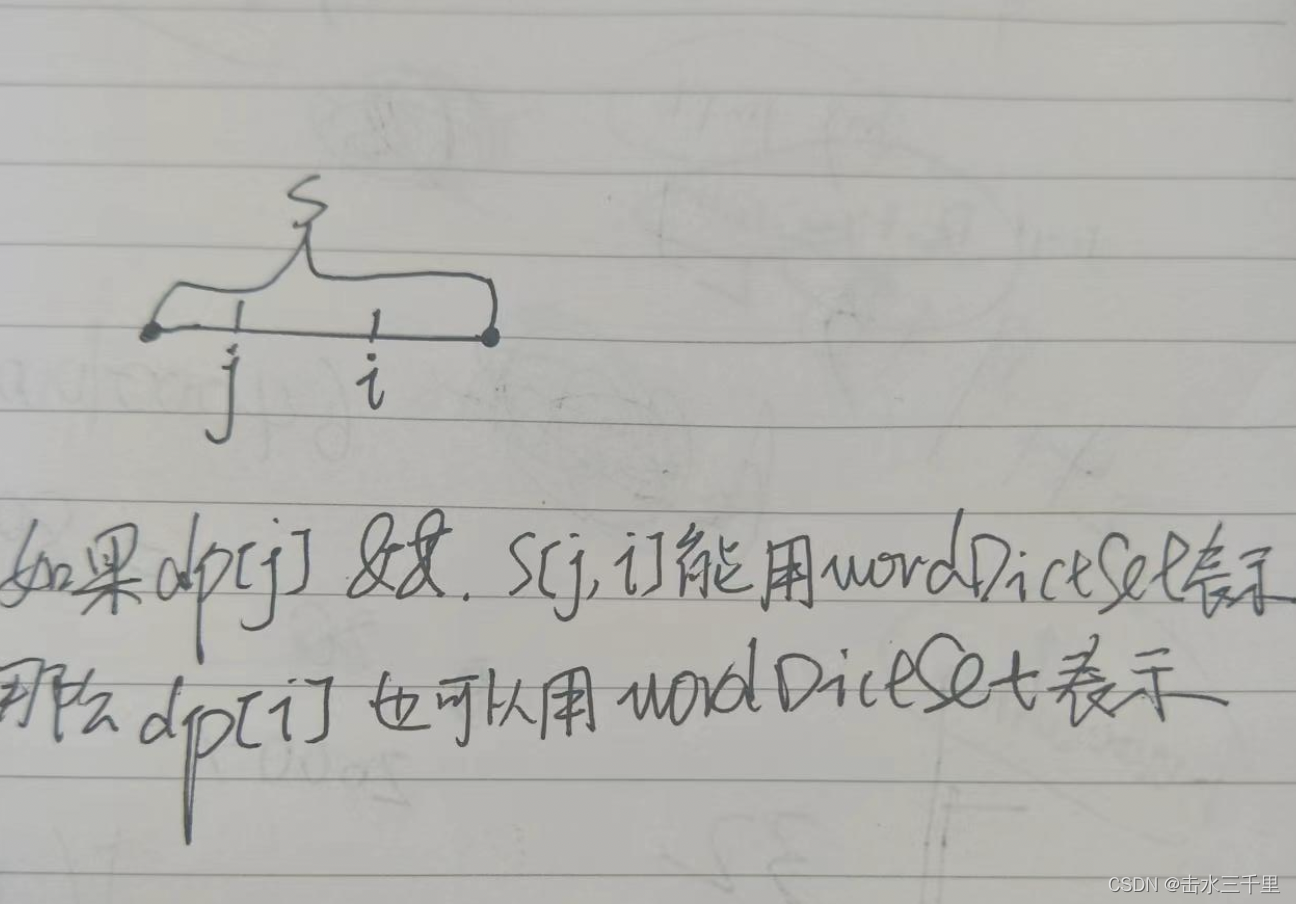 S
j i
如果dp[j] && S[j,i]能用wordDictSet表示
那么dp[i]也可以用wordDictSet表示
CSDN @击水三千里